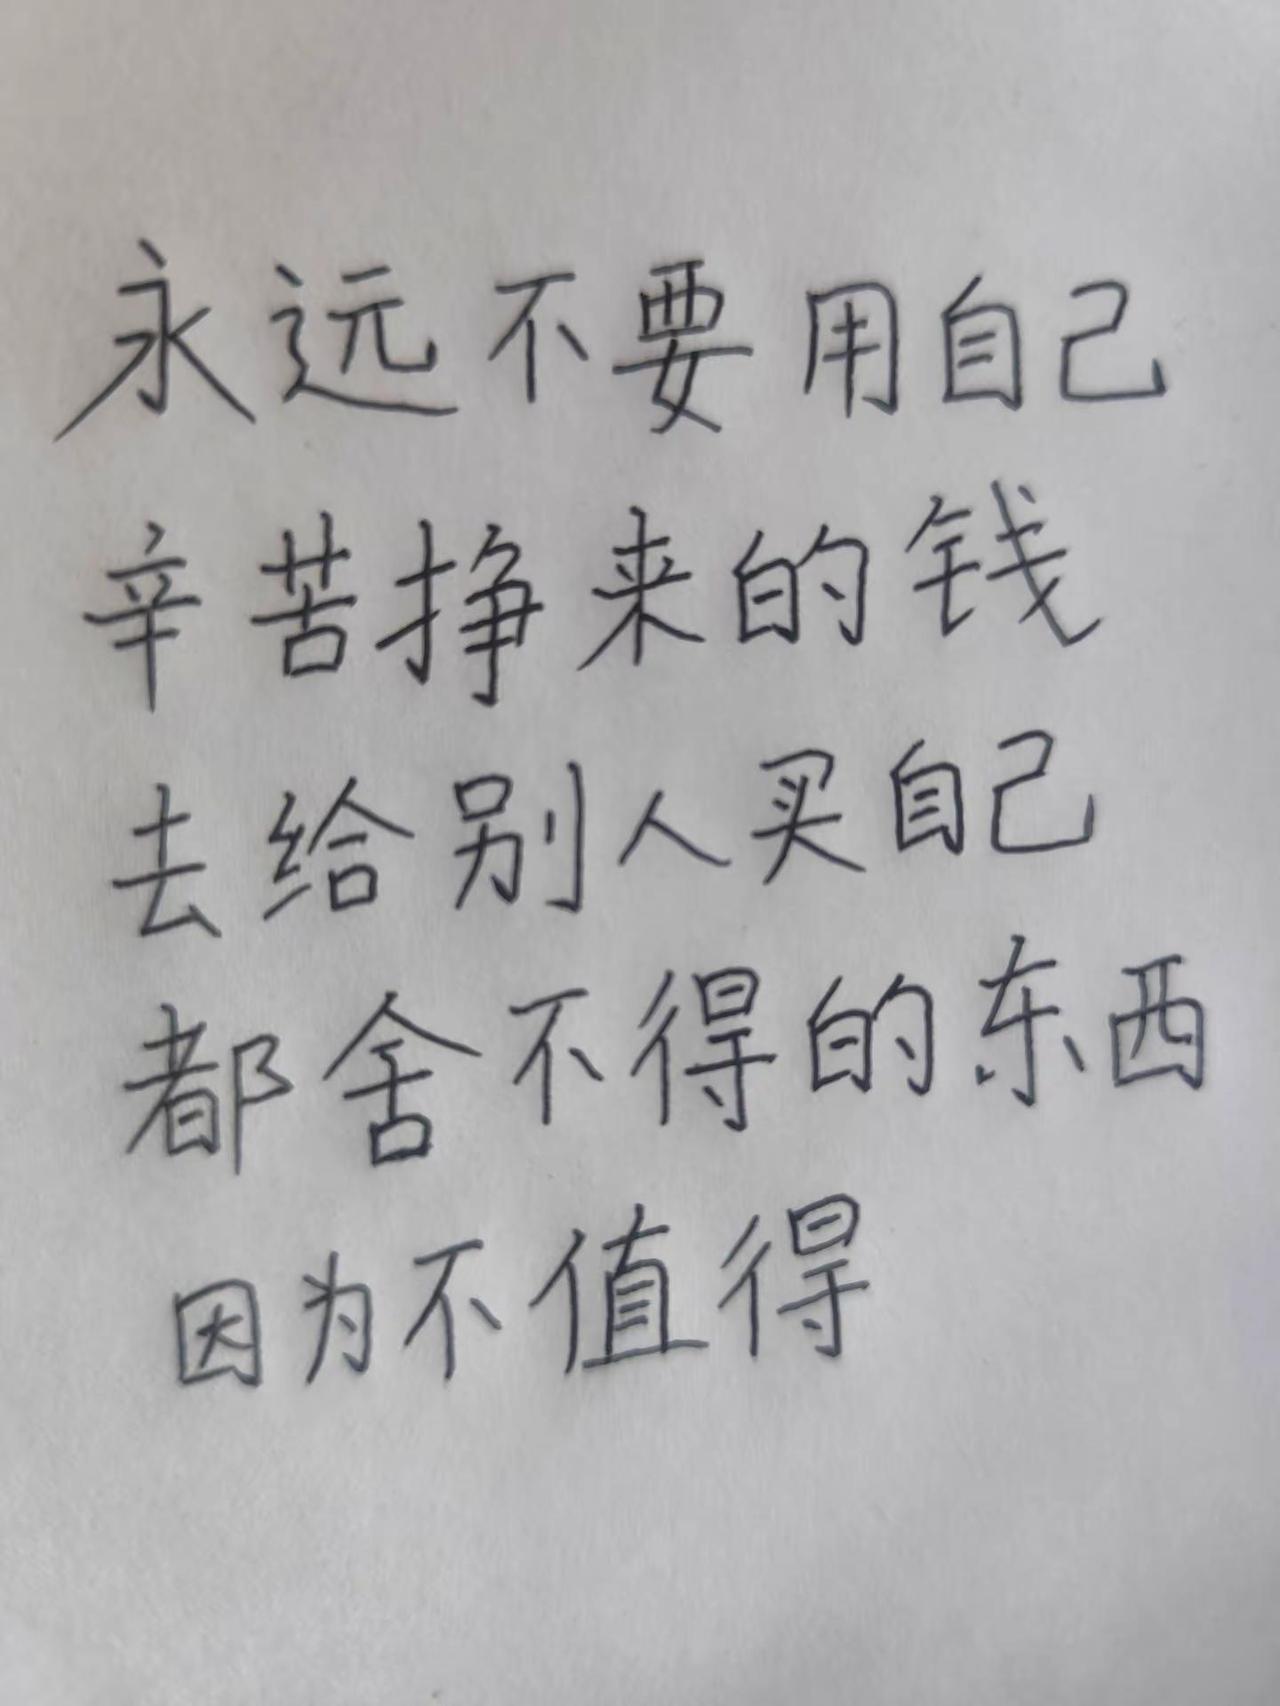 永远不要用自己
辛苦挣来的钱
去给别人买自己
都舍不得的东西
因为不值得